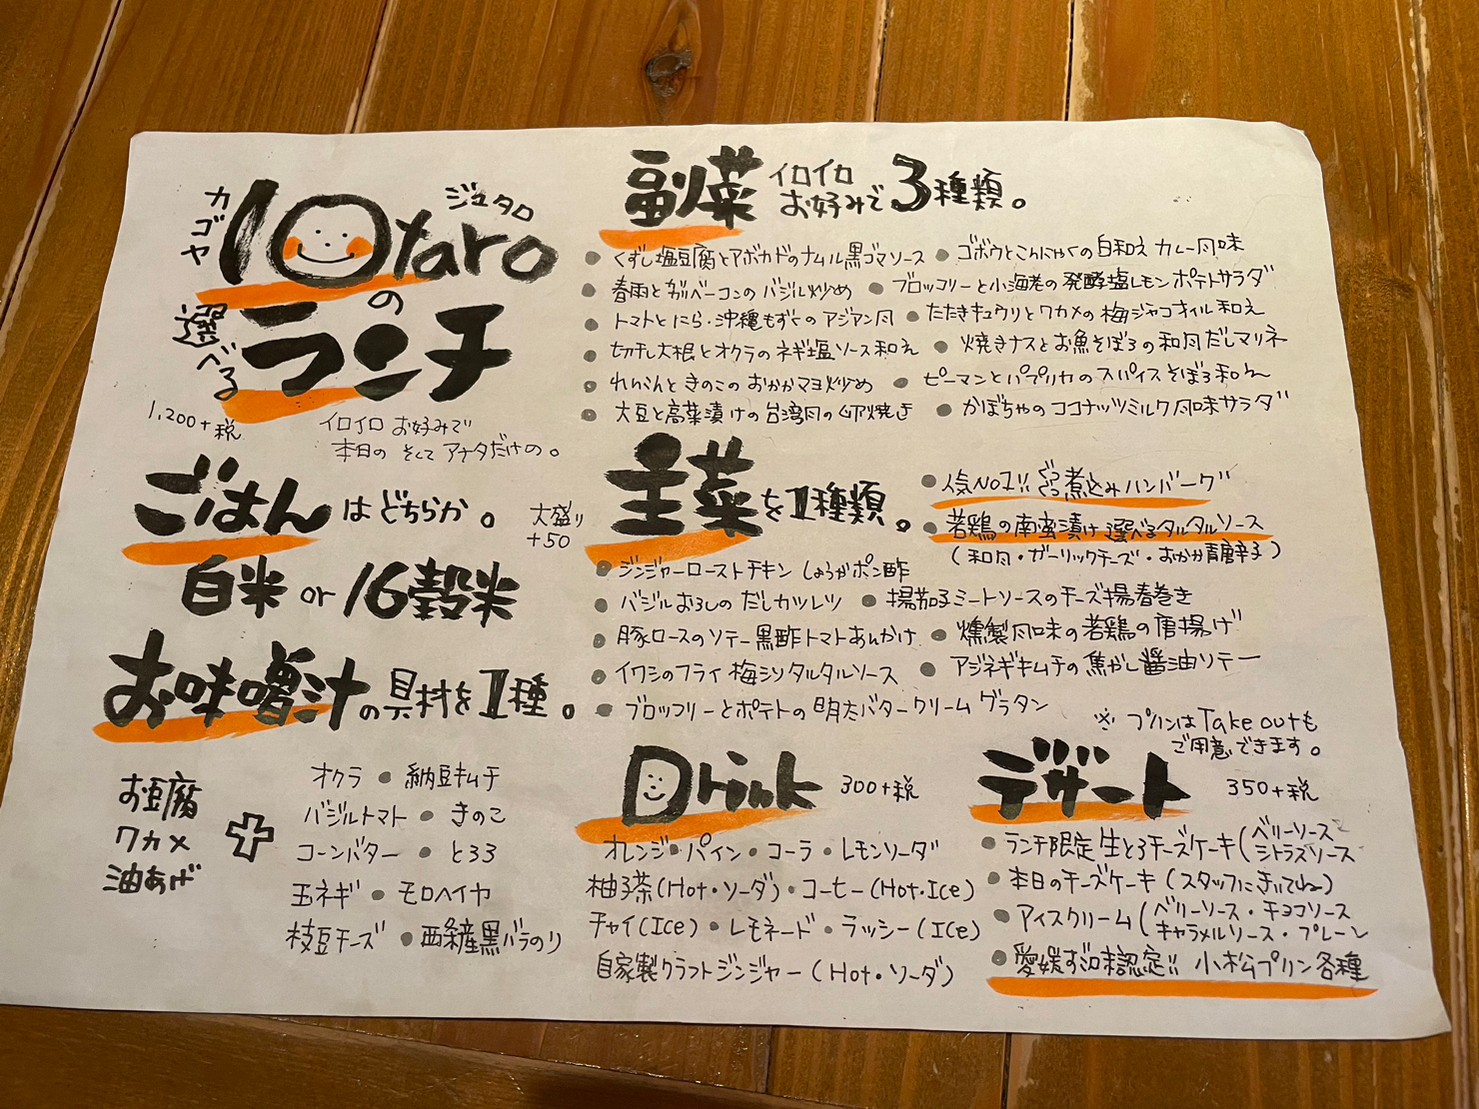 カゴヤ
10taro
ジュタロ
の
選べる
ランチ
1,200+税
イロイロ お好みで
本日の そして アナタだけの。
ごはんはどちらか。
大盛り
+50
白米 or 16穀米
お味噌汁の具材を1種。
お豆腐
ワカメ
油あげ
+
オクラ ● 納豆キムチ
バジルトマト ● きのこ
コーンバター ● とろろ
玉ネギ ● モロヘイヤ
枝豆チーズ ● 西条産黒バラのり
副菜 イロイロ
お好みで 3種類。
● くずし塩豆腐とアボカドのナムル黒ゴマソース
● ゴボウとこんにゃくの白和え カレー風味
● 春雨とベーコンのバジル炒め
● ブロッコリーと小海老の発酵塩レモンポテトサラダ
● トマトとにら・沖縄もずくのアジアン風
● たたきキュウリとワカメの梅ジャコオイル和え
● 切干し大根とオクラのネギ塩ソース和え
● 焼きナスとお魚そぼろの和風だしマリネ
● れんこんときのこのおかかマヨ炒め
● ピーマンとパプリカのスパイスそぼろ和え
● 大豆と高菜漬けの台湾風の卵焼き
● かぼちゃのココナッツミルク風味サラダ
主菜を1種類。
● 人気No1!! ぐつぐつ煮込みハンバーグ
● 若鶏の南蛮漬け 選べるタルタルソース
(和風・ガーリックチーズ・おかか青唐辛子)
● ジンジャーローストチキン しょうがポン酢
● バジルおろしの だしカツレツ
● 揚茄子ミートソースのチーズ揚春巻き
● 豚ロースのソテー黒酢トマトあんかけ
● 燻製風味の若鶏の唐揚げ
● イワシのフライ 梅シソタルタルソース
● アジネギキムチの焦がし醤油ソテー
● ブロッコリーとポテトの明太バタークリームグラタン
※ プリンはTake outも
ご用意できます。
Drink 300+税
オレンジ・パイン・コーラ・レモンソーダ
柚子茶(Hot・ソーダ)・コーヒー(Hot・Ice)
チャイ(Ice)・レモネード・ラッシー(Ice)
自家製クラフトジンジャー(Hot・ソーダ)
デザート 350+税
● ランチ限定 生とろチーズケーキ(ベリーソース
シトラスソース
● 本日のチーズケーキ(スタッフにきいてね)
● アイスクリーム(ベリーソース・チョコソース
キャラメルソース・プレーン
● 愛媛すご味認定!! 小松プリン各種